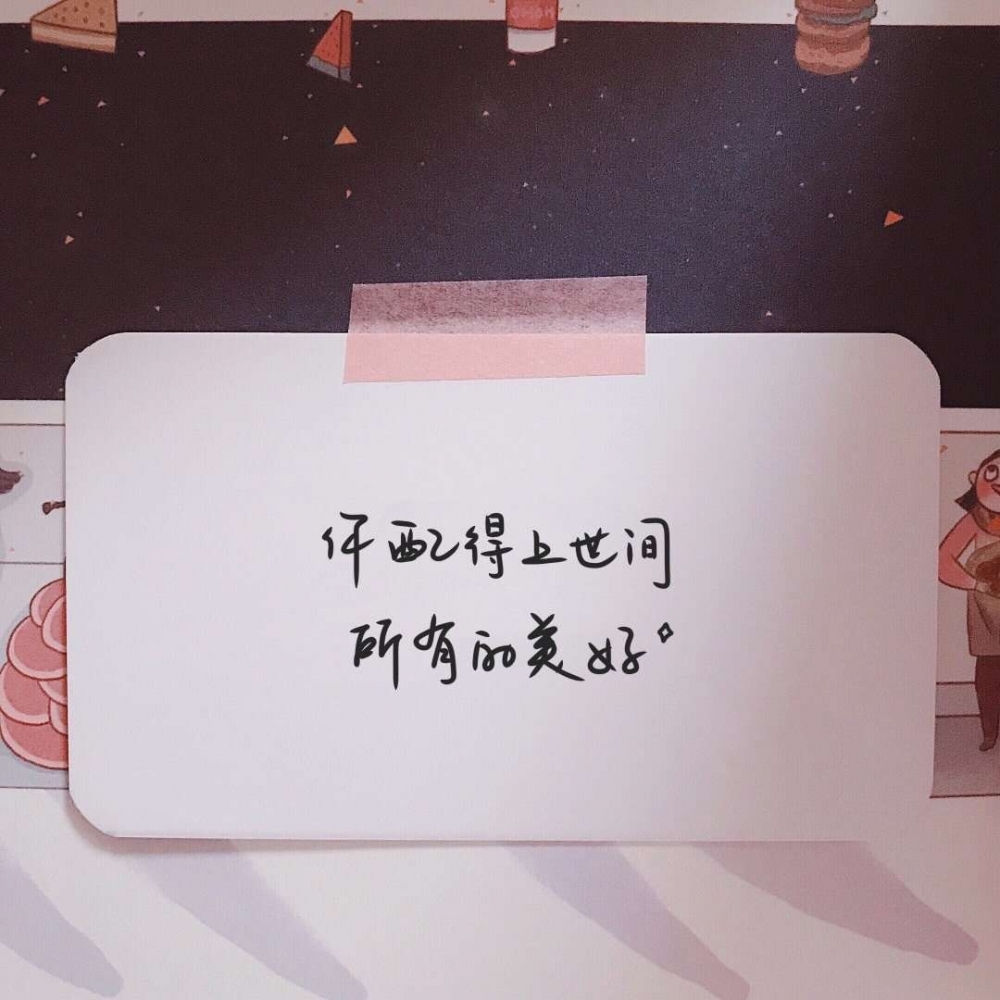 仟配得上世间
所有的美好。